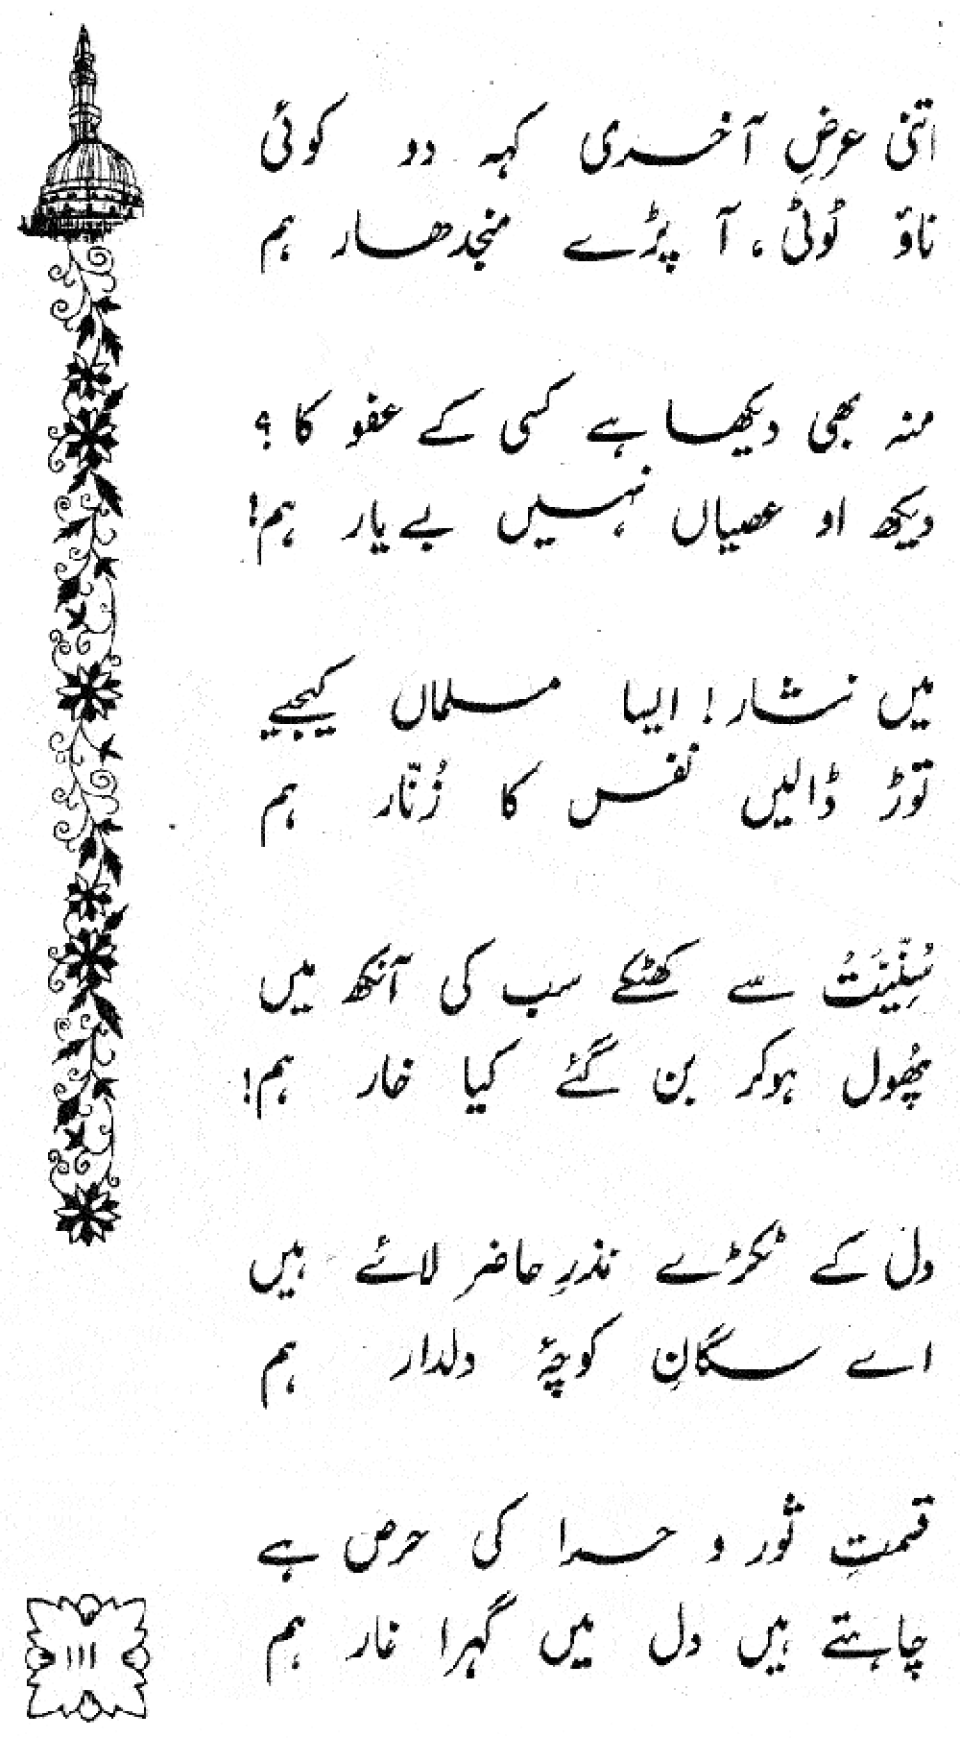 اتنی عرضِ آخری کہہ دو کوئی
ناؤ ٹوٹی، آ پڑے منجدھار ہم
منہ بھی دیکھا ہے کسی کے عفو کا؟
دیکھ او عصیاں نہیں بے یار ہم!
میں نثار! ایسا مسلماں کیجیے
توڑ ڈالیں نفس کا زُنّار ہم
سُنِّیَتُ سے کھٹکے سب کی آنکھ میں
پھُول ہوکر بن گئے کیا خار ہم!
دل کے ٹکڑے نذرِ حاضر لائے ہیں
اے سگانِ کوچۂ دلدار ہم
قسمتِ ثور و حرا کی حرص ہے
چاہتے ہیں دل میں گہرا غار ہم
۱۱۱